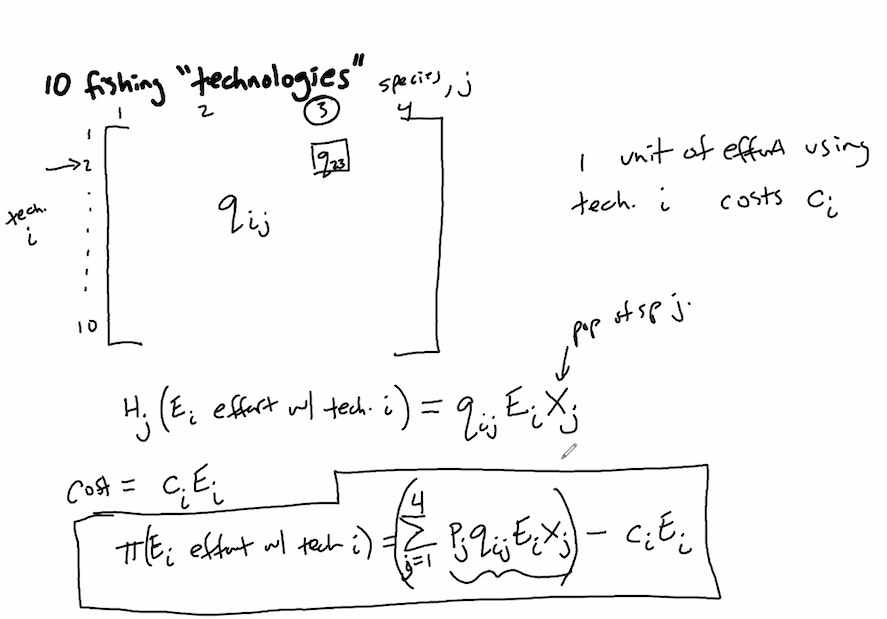 10 fishing "technologies" species, j
1 2 3 4
1
→ 2
q₂₃
tech. i
q_ij
10
1 unit of effort using
tech. i costs c_i
pop of sp j.
H_j (E_i effort w/ tech. i) = q_ij E_i X_j
Cost = c_i E_i
π(E_i effort w/ tech i) = (∑_{j=1}^{4} P_j q_ij E_i X_j) − c_i E_i